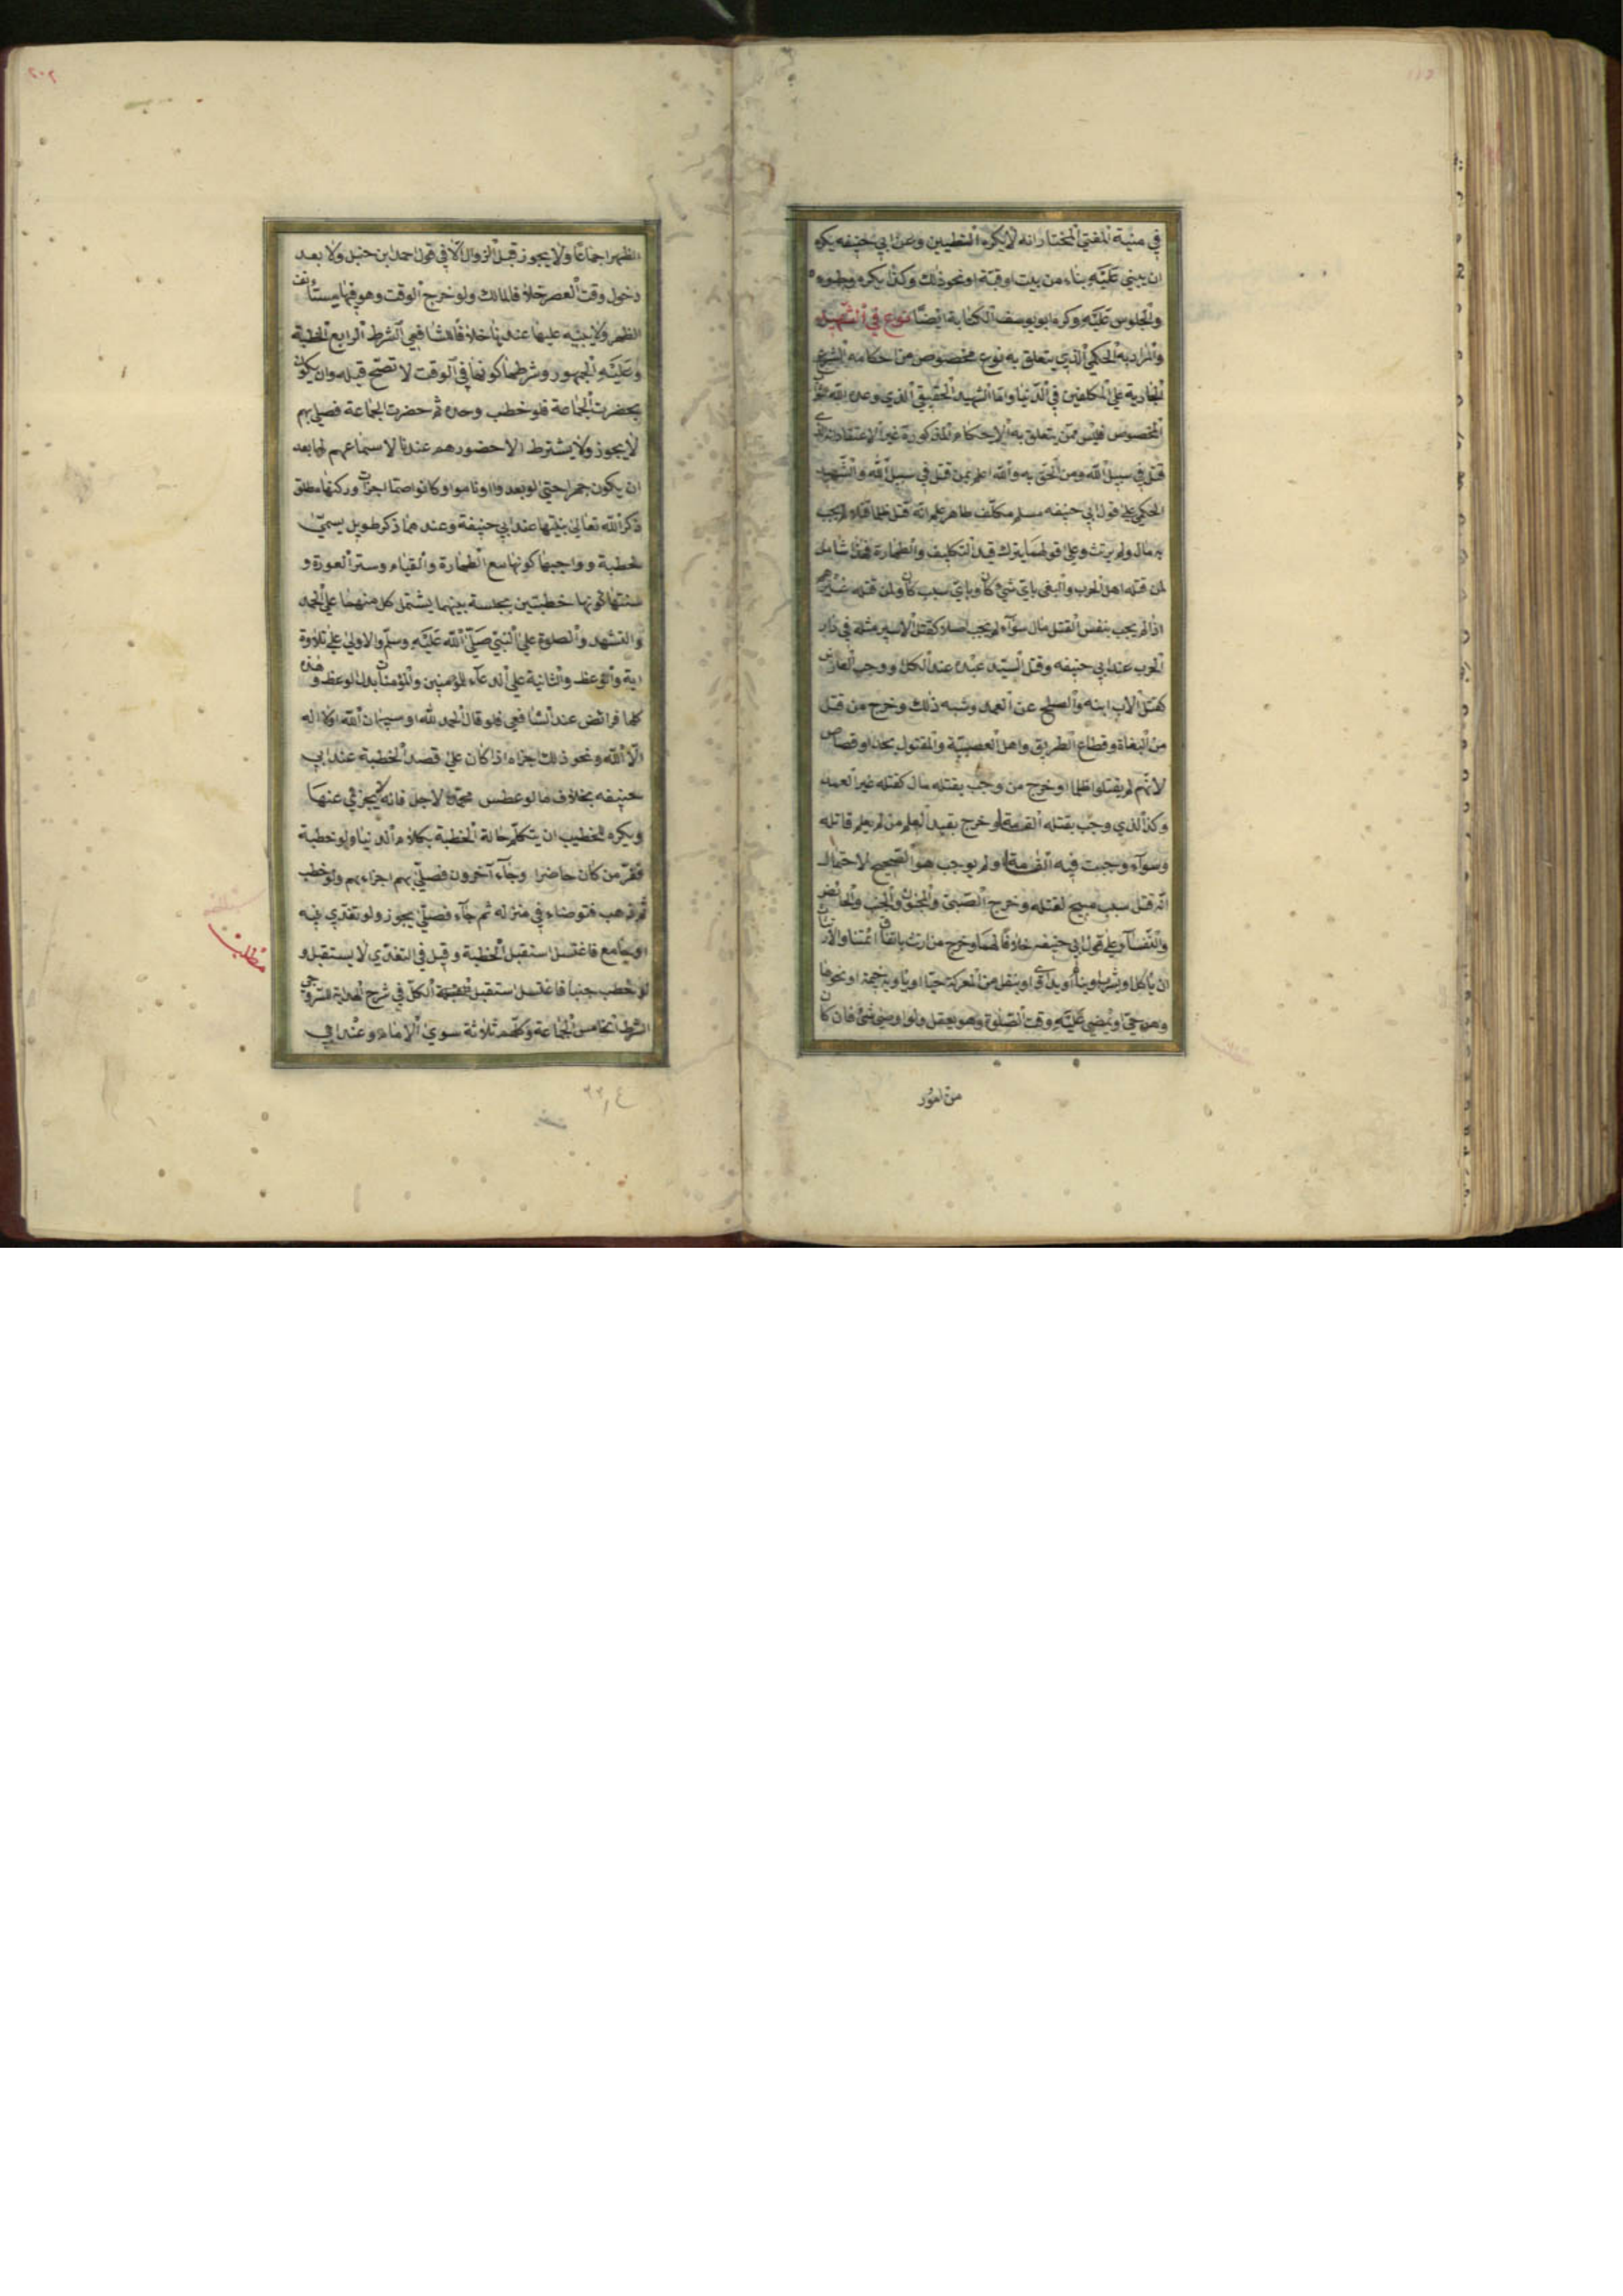 في منية المفتي المختار انه لا يكره التطيين وعن ابي حنيفه يكره
ان يبني عليه بناء من بيت او قبة او نحو ذلك وكذا يكره وطوه
والجلوس عليه وكره ابو يوسف الكتابة ايضا نوع في الشهيد
والمراد به الحكمي الذي يتعلق به نوع مخصوص من احكامه الشرع
الجارية علي المكلفين في الدنيا واما الشهيد الحقيقي الذي وعده الله
المخصوص فليس ممن يتعلق به الاحكام المذكورة غير الاعتقاد
قتل في سبيل الله ومن الحق به والله اعلم بمن قتل في سبيل الله والشهيد
الحكمي علي قول ابي حنيفه مسلم مكلف طاهر علم انه قتل ظلما قتلا لم يجب
به مال ولم يرتث وعلي قولهما يترك قيد التكليف والطهارة فهذا شامل
لمن قتله اهل الحرب والبغي باي شئ كان وباي سبب كان ولمن قتله غيرهم
اذا لم يجب بنفس القتل مال سوآء لم يجب اصلا كقتل الاسير مثله في دار
الحرب عند ابي حنيفه وقتل السيد عبده عند الكل او وجب لعارض
كقتل الاب ابنه والصلح عن العمد وشبه ذلك وخرج من قتل
من البغاة وقطاع الطريق واهل العصبية والمقتول بحد او قصاص
لانهم لم يقتلوا ظلما او خرج من وجب بقتله مال كقتله غير العمد
وكذا الذي وجب بقتله القسامة وخرج بقيد العلم من لم يعلم قاتله
وسوآء وجبت فيه القسامة او لم يوجب هو الصحيح لاحتمال
انه قتل بسبب مبيح لقتله وخرج الصبي والمجنون والجنب والحائض
والنفسآء علي قول ابي حنيفه خلافا لهما وخرج من ارتث باتفاق ائمتنا والارتثاث
ان ياكل او يشرب او ينام او يداوي او ينقل من المعركة حيا او ياويه خيمة او نحوها
وهو حي او يمضي عليه وقت الصلوة وهو يعقل ولو اوصي بشئ فان كان
من امور
الظهر اجماعا ولا يجوز قبل الزوال الا في قول احمد ابن حنبل ولا بعد
دخول وقت العصر خلافا لمالك ولو خرج الوقت وهو فيها يستأنف
الظهر ولا يبنيه عليها عندنا خلافا للشافعي الشرط الرابع الخطبة
وعليه الجمهور وشرطها كونها في الوقت لا تصح قبله وان يكون
بحضرت الجماعة فلو خطب وحده ثم حضرت الجماعة فصلي بهم
لا يجوز ولا يشترط الا حضورهم عندنا لا سماعهم لها بعد
ان يكون جهرا حتي لو بعدوا او ناموا او كانوا صما اجزات وركنها مطلق
ذكر الله تعالي بنيتها عند ابي حنيفة وعندهما ذكر طويل يسمي
خطبة وواجبها كونها مع الطهارة والقيام وستر العورة و
سنتها كونها خطبتين بجلسة بينهما يشتمل كل منهما علي الحمد
والتشهد والصلوة علي النبي صلي الله عليه وسلم والاولي علي تلاوة
اية والوعظ والثانية علي الدعآء للمؤمنين والمؤمنات بدل الوعظ وهذه
كلها فرائض عند الشافعي فلو قال الحمد لله او سبحان الله او لا اله
الا الله ونحو ذلك اجزاه اذا كان علي قصد الخطبة عند ابي
حنيفه بخلاف ما لو عطس فحمد لاجل فانه لا يجزئ عنها
ويكره للخطيب ان يتكلم حالة الخطبة بكلام الدنيا ولو خطبة
ففر من كان حاضرا وجآء آخرون فصلي بهم اجزاءهم ولو خطب
ثم ذهب فتوضاء في منزله ثم جآء فصلي يجوز ولو تغدي فيه
او جامع فاغتسل استقبل الخطبة وقيل في التغدي لا يستقبل و
لو خطب جنبا فاغتسل استقبل الخطبة الكل في شرح الهداية للسروجي
الشرط الخامس الجماعة وكلهم ثلاثة سوي الامام وعند ابي
مطلب